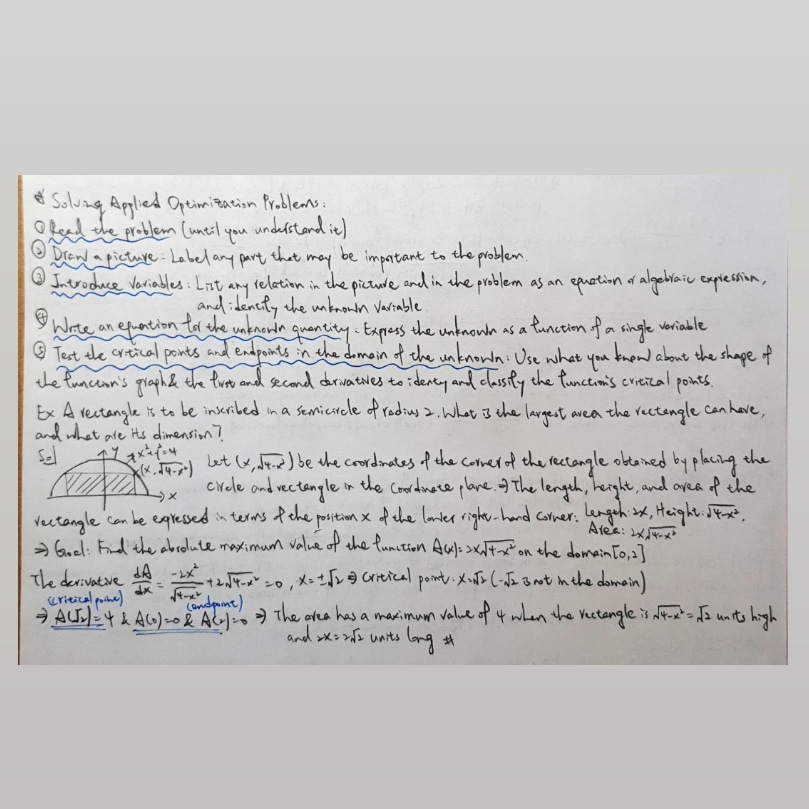 * Solving Applied Optimization Problems:
① Read the problem (until you understand it)
② Draw a picture: Label any part that may be important to the problem.
③ Introduce variables: List any relation in the picture and in the problem as an equation or algebraic expression,
and identify the unknown variable
④ Write an equation for the unknown quantity: Express the unknown as a function of a single variable
⑤ Test the critical points and endpoints in the domain of the unknown: Use what you know about the shape of
the function's graph & the first and second derivatives to identy and classify the function's critical points.
Ex A rectangle is to be inscribed in a semicircle of radius 2. What is the largest area the rectangle can have,
and what are its dimension?
Sol
y x²+y²=4
(x, √4-x²)
x
Let (x, √4-x²) be the coordinates of the corner of the rectangle obtained by placing the
circle and rectangle in the coordinate plane. ⇒ The length, height, and area of the
rectangle can be expressed in terms of the position x of the lower right-hand corner: Length: 2x, Height: √4-x².
Area: 2x√4-x²
⇒ Goal: Find the absolute maximum value of the function A(x)=2x√4-x² on the domain [0,2]
The derivative dA/dx = -2x²/√4-x² + 2√4-x² = 0, x=±√2 ⇒ Critical point: x=√2 (-√2 is not in the domain)
(critical point) (endpoint)
⇒ A(√2)=4 & A(0)=0 & A(2)=0 ⇒ The area has a maximum value of 4 when the rectangle is √4-x²=√2 units high
and 2x=2√2 units long #